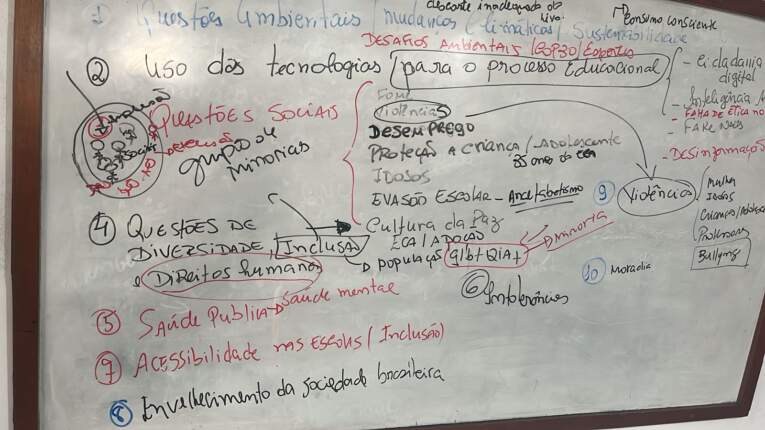 Descarte inadequado do lixo
→ Consumo consciente
1 Questões Ambientais / mudanças climáticas / Sustentabilidade
DESAFIOS AMBIENTAIS / COP30 /
② Uso das tecnologias para o processo Educacional
- Cidadania digital
- Inteligência A
- FALHA DE ÉTICA NO
- FAKE NEWS
- DESINFORMAÇÃO
QUESTÕES SOCIAIS
grupo de minorias
FOME
VIOLÊNCIAS
DESEMPREGO
PROTEÇÃO A CRIANÇA / ADOLESCENTE
35 anos do ECA
IDOSOS
EVASÃO ESCOLAR - Analfabetismo
Cultura da Paz
ECA / ADOÇÃO
④ QUESTÕES DE DIVERSIDADE, Inclusão
e Direitos humanos
→ POPULAÇÃO glbtQIA+
→ minoria
⑤ SAÚDE PUBLICA → Saúde mental
⑥ Intolerâncias
⑦ ACESSIBILIDADE nas Escolas / Inclusão)
⑧ Envelhecimento da sociedade brasileira
⑨ Violência
Mulher
Idosos
Crianças/Adolesc
Professores
Bullying
10 Moradia